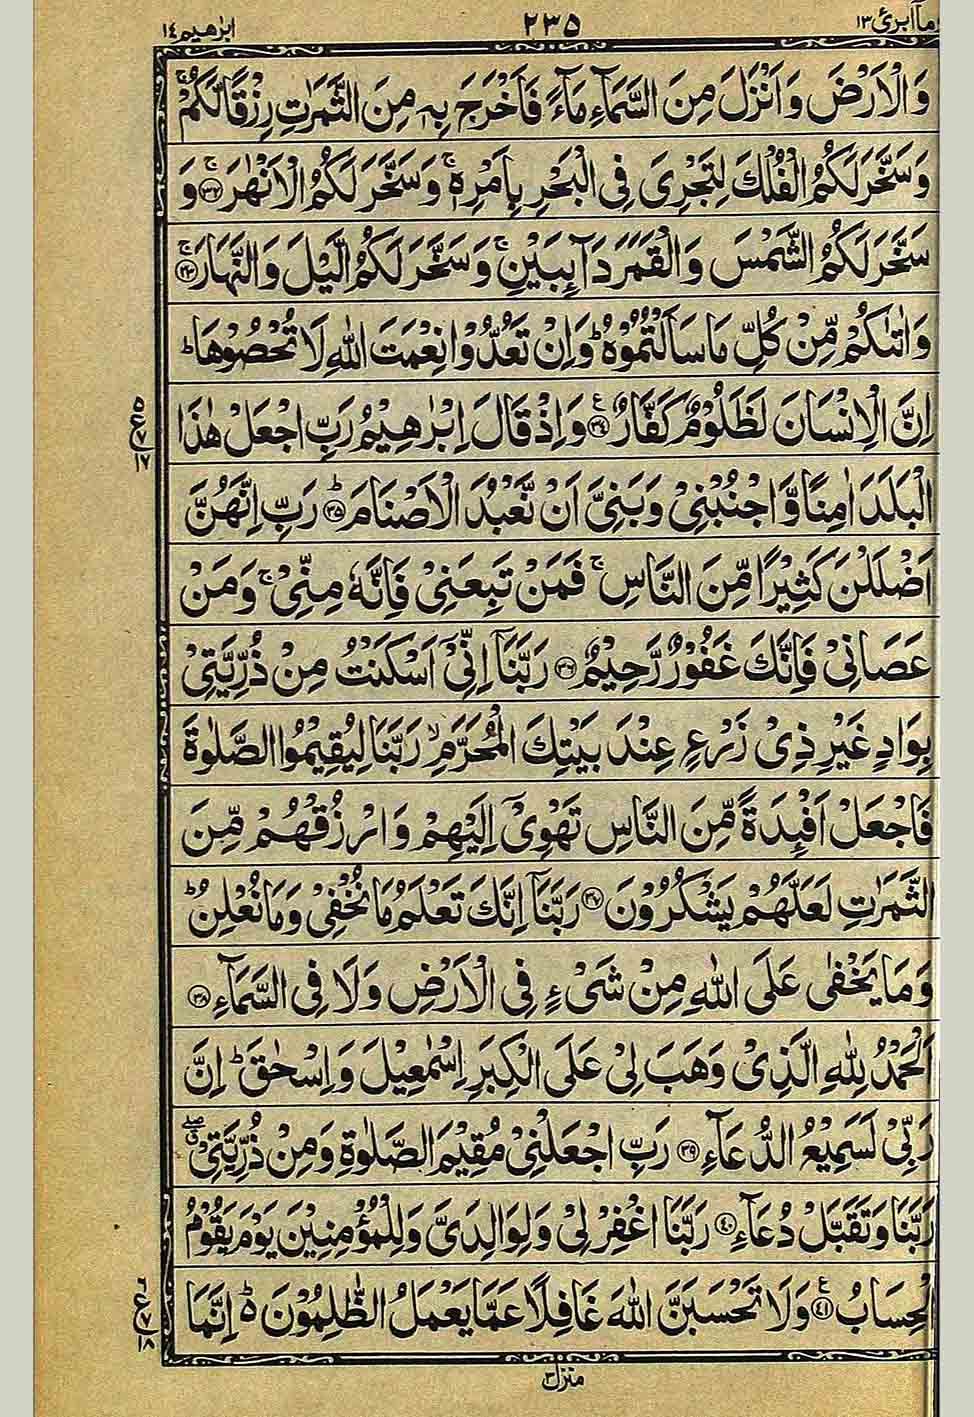 وماۤ ابرئ ١٣
٢٣۵
ابرٰهيم ١٤
وَالْاَرْضَ وَاَنْزَلَ مِنَ السَّمَآءِ مَآءً فَاَخْرَجَ بِهٖ مِنَ الثَّمَرٰتِ رِزْقًا لَّكُمْ ۚ
وَسَخَّرَ لَكُمُ الْفُلْكَ لِتَجْرِیَ فِی الْبَحْرِ بِاَمْرِهٖ ۚ وَسَخَّرَ لَكُمُ الْاَنْهٰرَ ۚ﴿٣٢﴾ وَ
سَخَّرَ لَكُمُ الشَّمْسَ وَالْقَمَرَ دَآىِٕبَيْنِ ۚ وَسَخَّرَ لَكُمُ الَّيْلَ وَالنَّهَارَ ۚ﴿٣٣﴾
وَاٰتٰىكُمْ مِّنْ كُلِّ مَا سَاَلْتُمُوْهُ ؕ وَاِنْ تَعُدُّوْا نِعْمَتَ اللّٰهِ لَا تُحْصُوْهَا ؕ
اِنَّ الْاِنْسَانَ لَظَلُوْمٌ كَفَّارٌ ﴿٣٤﴾ع وَاِذْ قَالَ اِبْرٰهِيْمُ رَبِّ اجْعَلْ هٰذَا
۵ ع ٧ ١٧
الْبَلَدَ اٰمِنًا وَّاجْنُبْنِیْ وَبَنِیَّ اَنْ نَّعْبُدَ الْاَصْنَامَ ؕ﴿٣۵﴾ رَبِّ اِنَّهُنَّ
اَضْلَلْنَ كَثِيْرًا مِّنَ النَّاسِ ۚ فَمَنْ تَبِعَنِیْ فَاِنَّهٗ مِنِّیْ ۚ وَمَنْ
عَصَانِیْ فَاِنَّكَ غَفُوْرٌ رَّحِيْمٌ ﴿٣٦﴾ رَبَّنَاۤ اِنِّیْۤ اَسْكَنْتُ مِنْ ذُرِّيَّتِیْ
بِوَادٍ غَيْرِ ذِیْ زَرْعٍ عِنْدَ بَيْتِكَ الْمُحَرَّمِ ۙ رَبَّنَا لِيُقِيْمُوا الصَّلٰوةَ
فَاجْعَلْ اَفْىِٕدَةً مِّنَ النَّاسِ تَهْوِیْۤ اِلَيْهِمْ وَارْزُقْهُمْ مِّنَ
الثَّمَرٰتِ لَعَلَّهُمْ يَشْكُرُوْنَ ﴿٣٧﴾ رَبَّنَاۤ اِنَّكَ تَعْلَمُ مَا نُخْفِیْ وَمَا نُعْلِنُ ؕ
وَمَا يَخْفٰی عَلَی اللّٰهِ مِنْ شَیْءٍ فِی الْاَرْضِ وَلَا فِی السَّمَآءِ ﴿٣٨﴾
اَلْحَمْدُ لِلّٰهِ الَّذِیْ وَهَبَ لِیْ عَلَی الْكِبَرِ اِسْمٰعِيْلَ وَاِسْحٰقَ ؕ اِنَّ
رَبِّیْ لَسَمِيْعُ الدُّعَآءِ ﴿٣٩﴾ رَبِّ اجْعَلْنِیْ مُقِيْمَ الصَّلٰوةِ وَمِنْ ذُرِّيَّتِیْ ۖق
رَبَّنَا وَتَقَبَّلْ دُعَآءِ ﴿٤٠﴾ رَبَّنَا اغْفِرْ لِیْ وَلِوَالِدَیَّ وَلِلْمُؤْمِنِيْنَ يَوْمَ يَقُوْمُ
الْحِسَابُ ﴿٤١﴾ع وَلَا تَحْسَبَنَّ اللّٰهَ غَافِلًا عَمَّا يَعْمَلُ الظّٰلِمُوْنَ ؕ۬ اِنَّمَا
٦ ع ٧ ١٨
منزل ٣